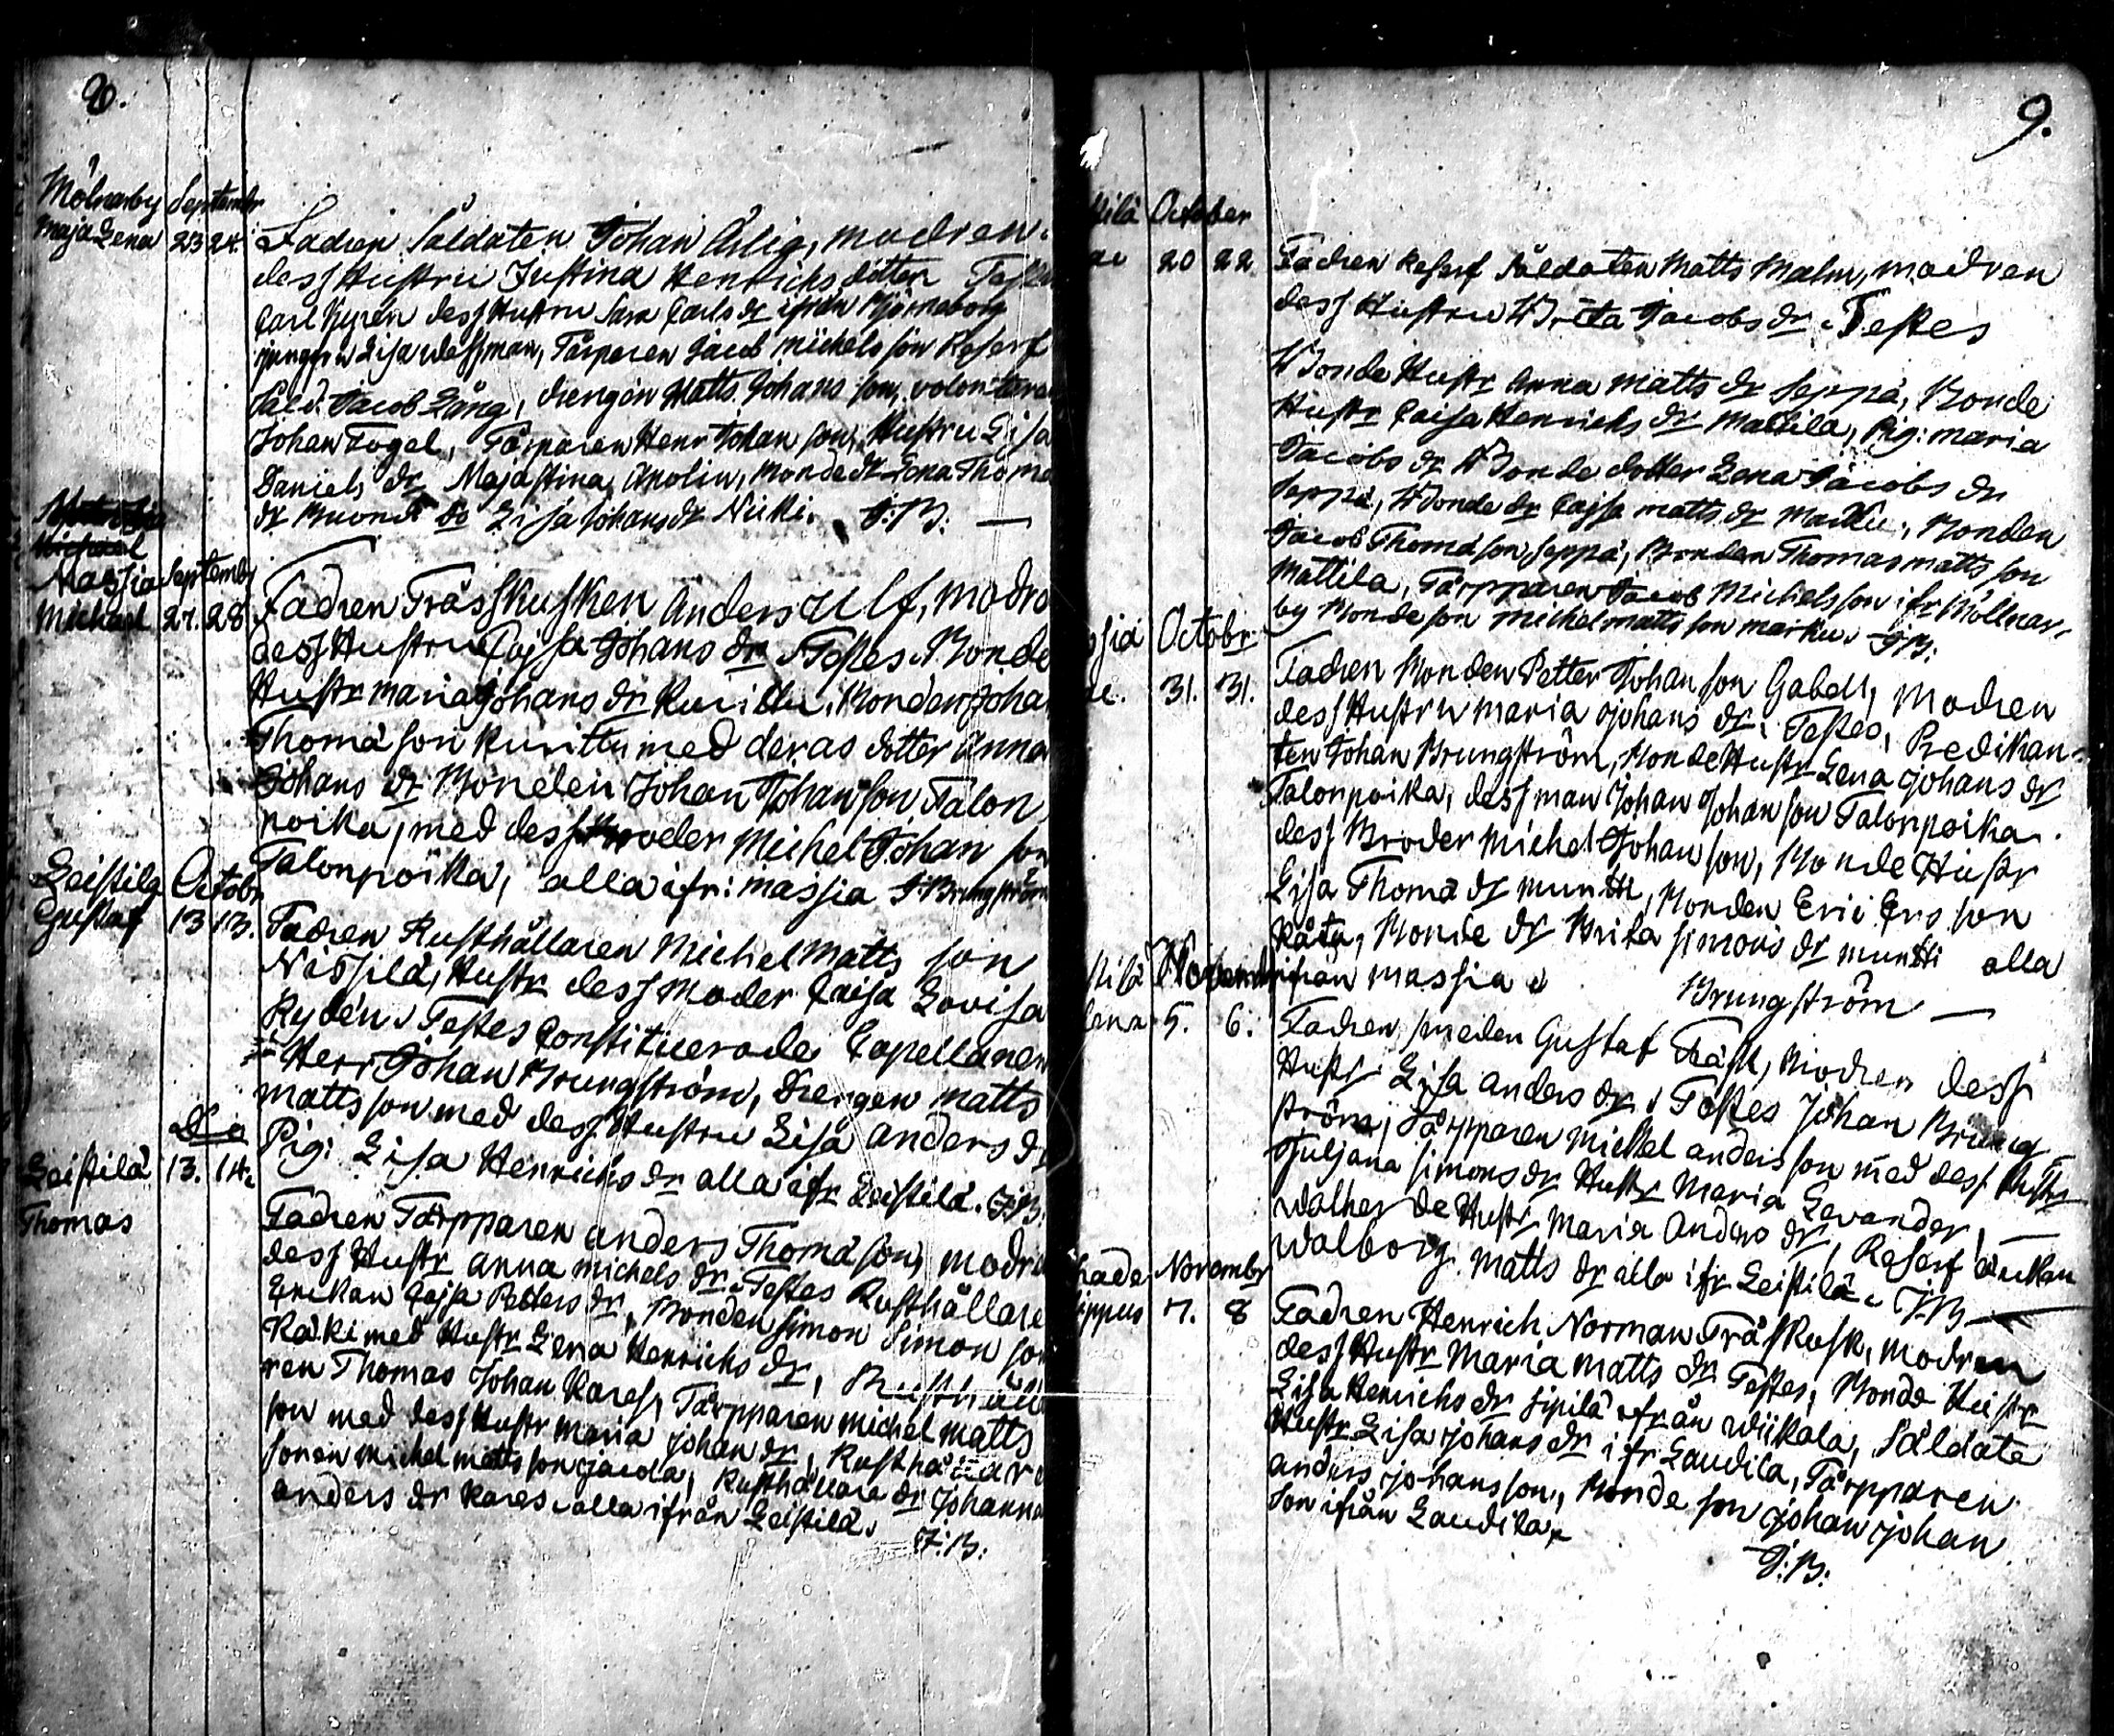 8.
Mölnarby Septembr
Maja Lena 23 24. Fadren Soldaten Johan Ärlig, modren
dess Hustru Justina Henrichs dotter Testes
Carl dess Hustru Sara Carls dr ifrån Björneborg
jungfru Lisa Wessman, Tårparen Jacob Michels son Reserf
Sold. Jacob Lång, drengen Matts Johans son, volontären
Johan Fogel, Tårparen Henr Johan son, Hustru Lisa
Daniels dr Maja Stina Anolin, Bonde dr Lena Thoma
dr Lisa Johans dr Nicki. J:B: —
Massia Septembr
Michael 27. 28 Fadren Frässkusken Anders Ulf, modre
dess Hustru Cajsa Johans dr Testes Bonde
Hustr Maria Johans dr Kurittu, Bonden Joha
Thomä son Kurittu med deras dotter Anna
Johans dr Bonden Johan Johan son Talon
poika, med dess Broder Michel Johan son
Talonpoika, alla ifr: Massia J: Brungström
Leistilä Octobr
Gustaf 13 13. Fadren Rusthållaren Michel Matts son
Nissilä, Hustr dess Moder Caisa Lovisa
Rydén. Testes Constituerade Capellanen
Herr Johan Brungström, Drengen Matts
Matts son med dess Hustru Lisa Anders dr
Pig: Lisa Henrichs dr alla ifr Leistilä. J:B.
Leistilä 13. 14.
Thomas
Fadren Tårpparen Anders Thomä son, modre
dess Hustr Anna Michels dr Testes Rusthållare
Enckan Cajsa Petters dr, Bonden Simon Simon son
Käki med Hustr Lena Henrichs dr, Rusthålla
ren Thomas Johan Kares, Tårpparen Michel Matts
son med dess Hustr Maria Johan dr, Rusthållare
sonen Michel Matts son Jacola, Rusthållare dr Johanna
Anders dr Kares alla ifrån Leistilä. J:B:
9.
tilä October
20 22 Fadren Reserf Soldaten Matts Malm, modren
dess Hustru Brita Jacobs dr. Testes
Bonde Hustr Anna Matts dr Seppä, Bonde
Hustr Caisa Henrichs dr Mattila, Pig: Maria
Jacobs dr Bonde dotter Lena Jacobs dr
Seppä, Bonde dr Cajsa Matts dr Markku, Bonden
Jacob Thomä son Seppä, Bonden Thomas Matts son
Mattila, Tårpparen Jacob Michels son ifr Möllnar-
by Bonde son Michel Matts son Marku. J:B:
ssia Octobr
31. 31. Fadren Bonden Petter Johan son Gabell, Modren
dess Hustru Maria Johans dr. Testes, Predikan-
ten Johan Brungström, Bonde Hustr Lena Johans dr
Talonpoika, dess man Johan Johan son Talonpoika
dess Broder Michel Johan son, Bonde Hustr
Lisa Thomä dr Muntti, Bonden Eric Ers son
Råtu, Bonde dr Brita Simons dr Muntti alla
ifrån Massia Brungström —
stilä Novembr
lena 5. 6. Fadren smeden Gustaf Fräsk, Modren dess
Hustr Lisa Anders dr. Testes Johan Brung
ström, Tårpparen Michel Anders son med dess Hustr
Juljana Simons dr Hustr Maria Levander,
de Hustr Maria Anders dr, Reserf Enckan
Walborg Matts dr alla ifr Leistilä. J:B —
Novembr
lippus 7. 8 Fadren Henrich Norman Fräskusk, modren
dess Hustr Maria Matts dr Testes, Bonde Hustr
Lisa Henrichs dr Sipilä ifrån Wiikala, Soldate
Hustr Lisa Johans dr ifr Laudila, Tårpparen
Anders Johansson, Bonde son Johan Johan
son ifrån Laudila
J:B: